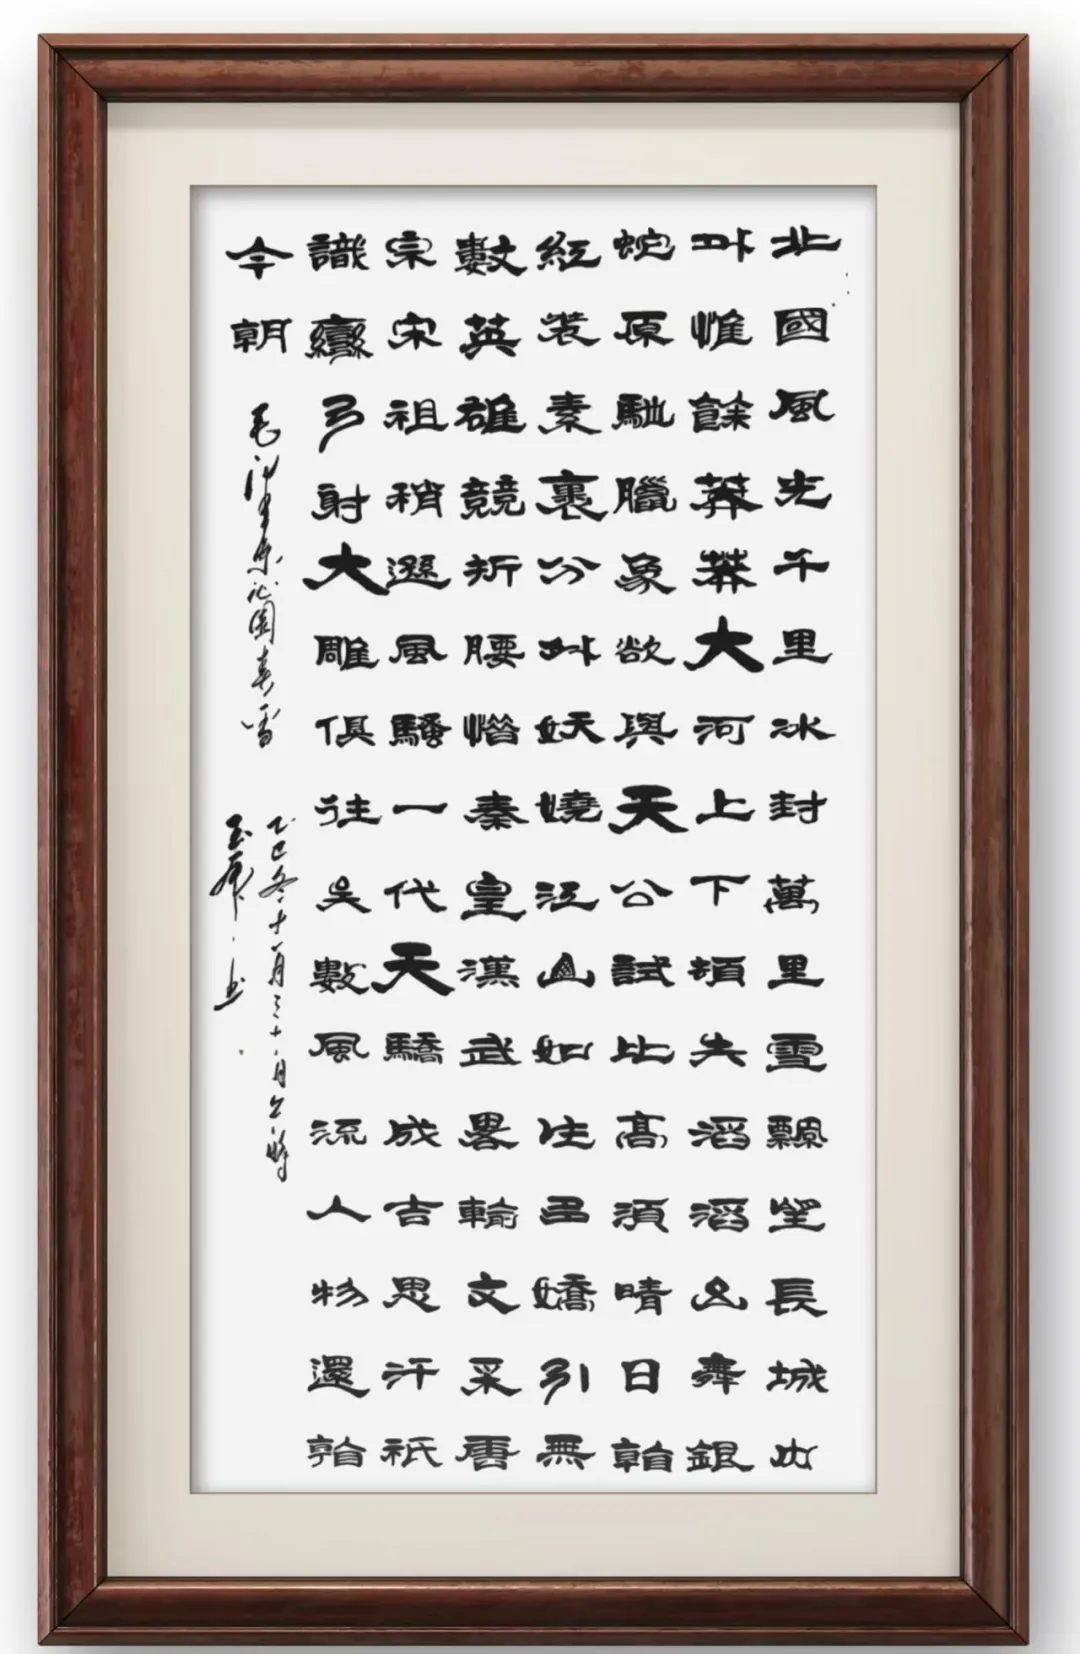 北國風光千里冰封萬里雪飄望長城内
外惟餘莽莽大河上下頓失滔滔山舞銀
蛇原馳臘象欲與天公試比高須晴日看
紅裝素裹分外妖嬈江山如此多嬌引無
數英雄競折腰惜秦皇漢武畧輸文采唐
宗宋祖稍遜風騷一代天驕成吉思汗祇
識彎弓射大雕俱往矣數風流人物還看
今朝 毛泽东沁園春雪
乙巳冬十月三十